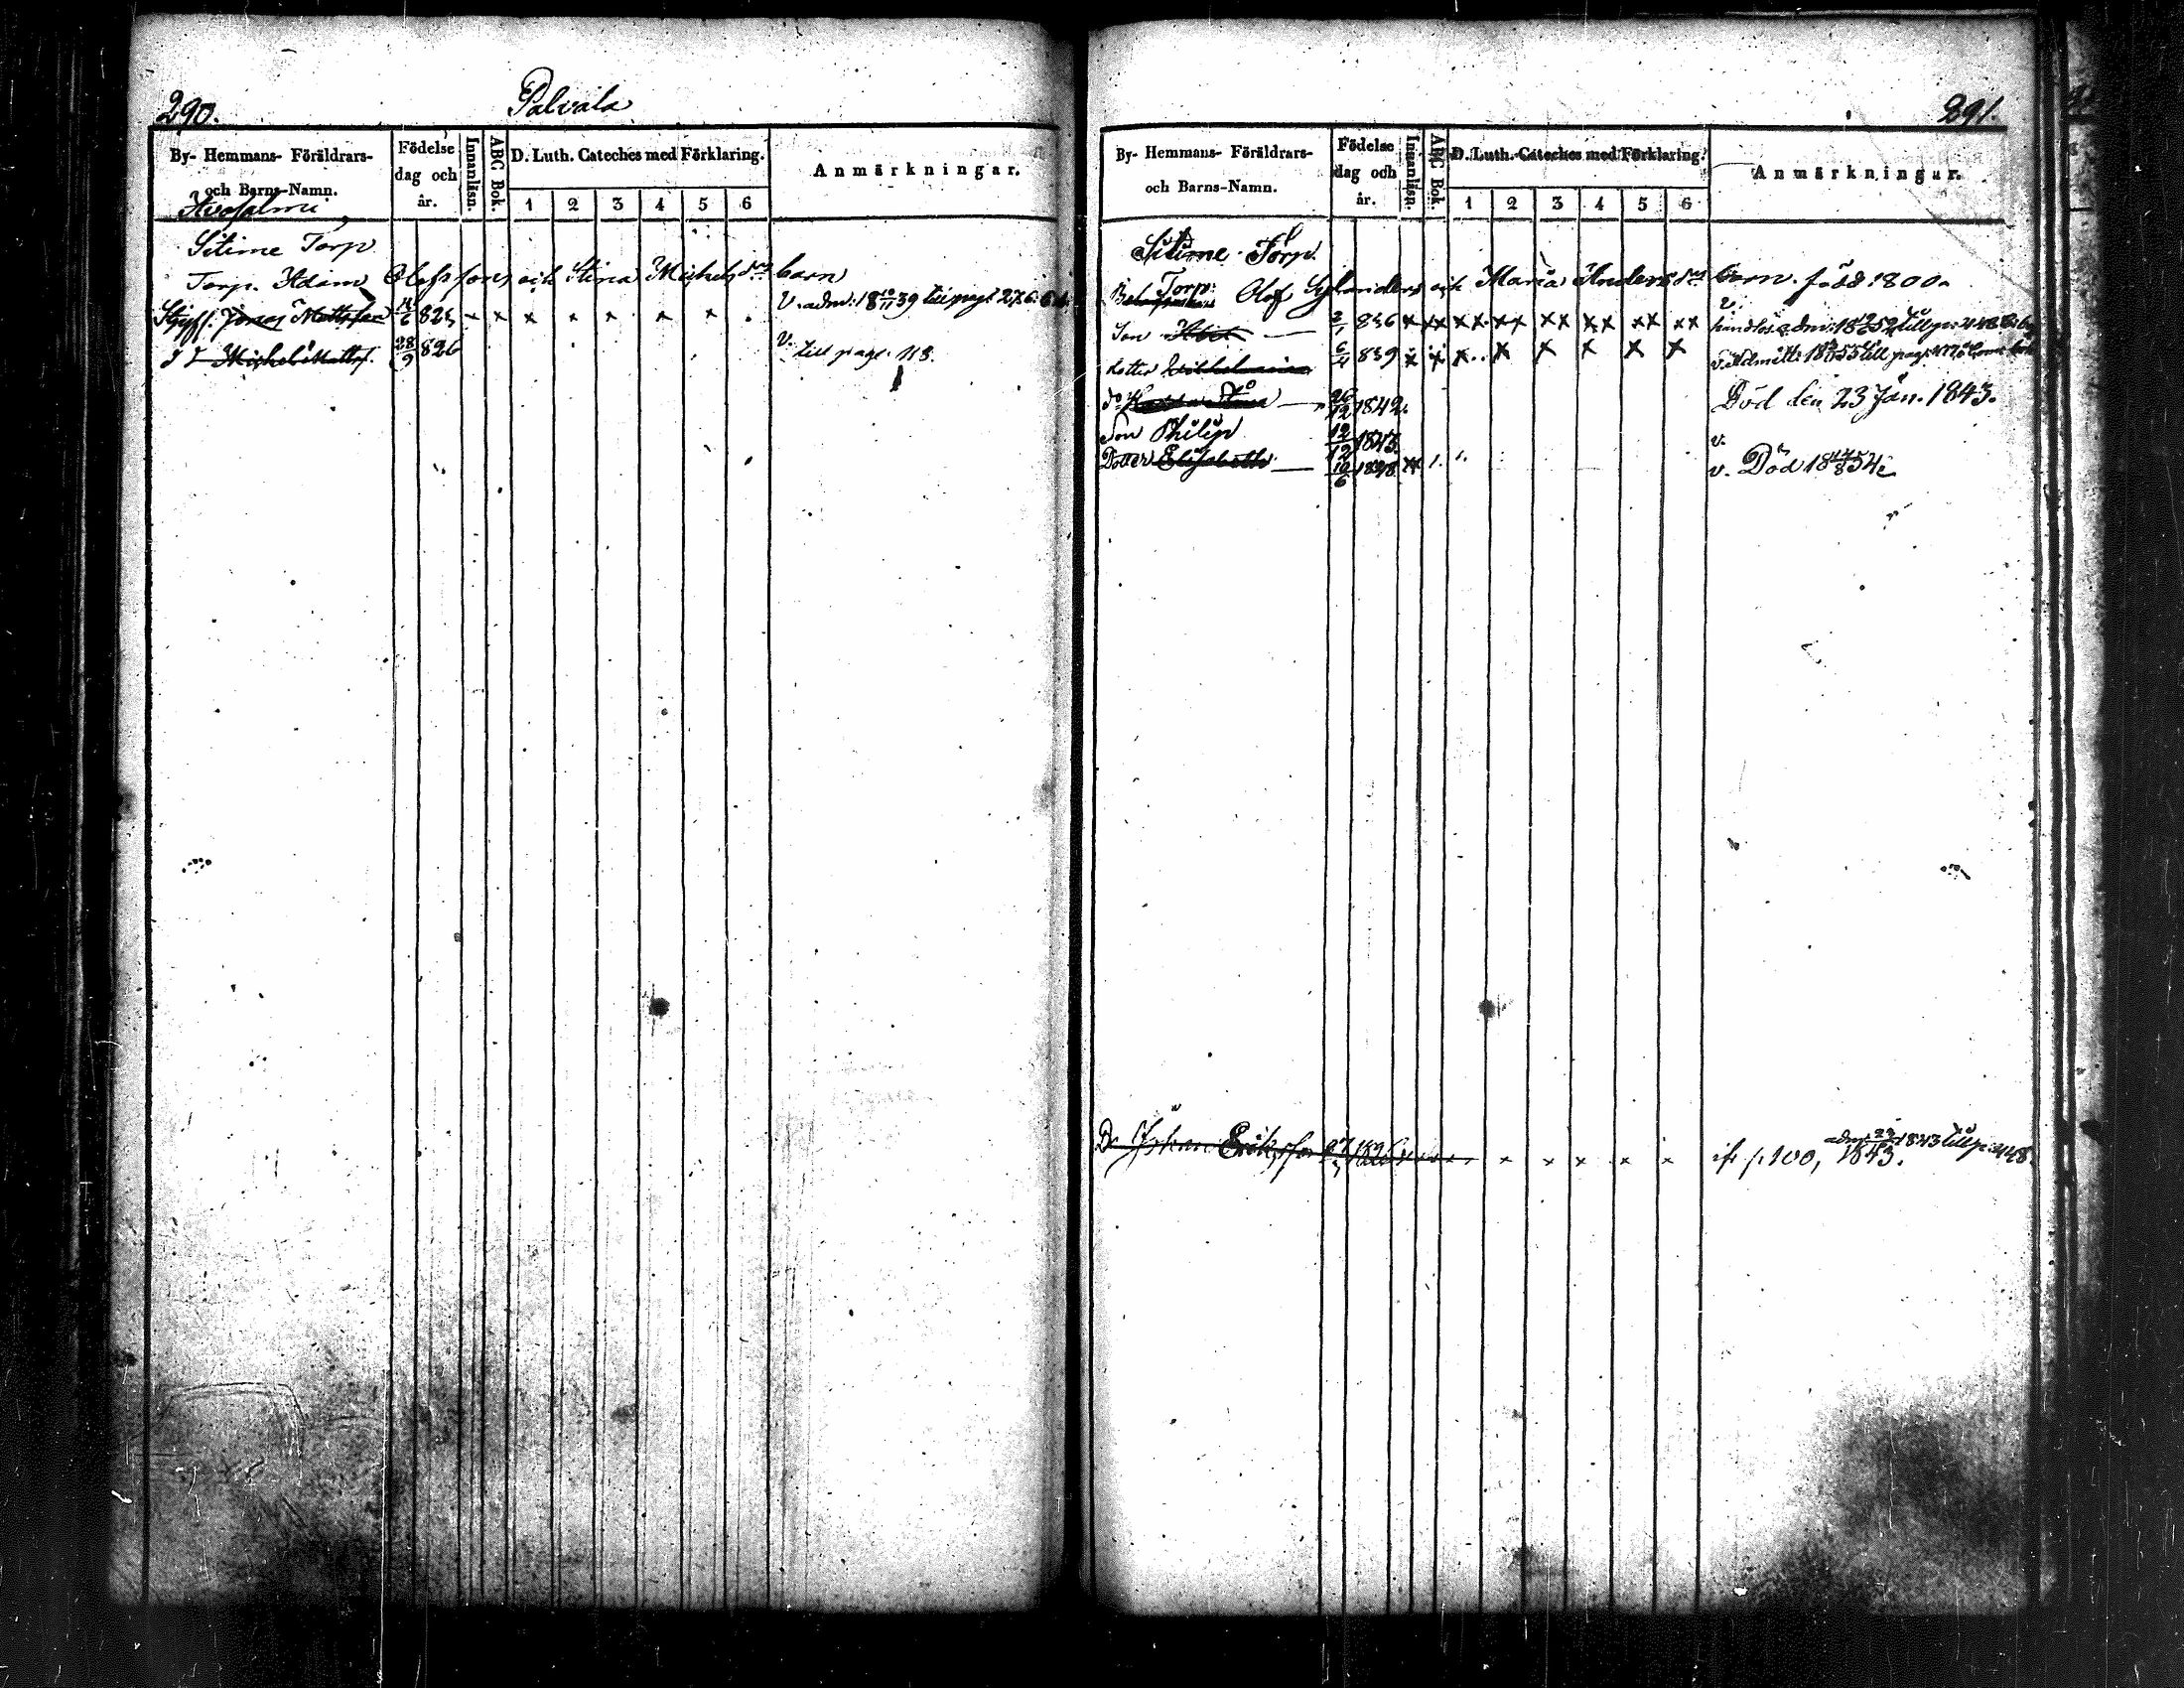 290.
Palvala
By- Hemmans- Föräldrars-
och Barns-Namn.
Födelse
dag och
år.
Innanläsn.
ABC Bok.
D. Luth. Cateches med Förklaring.
1 2 3 4 5 6
Anmärkningar.
Sitime Torp
Torp. Adam Olofssons och Stina Michelsdrs barn
Styff. Jonas Mattsson 6 825 x x x x x x x v. adm: 18 10/11 39 till pag: 276.
d d Michel Mattss. 28/9 826 v. till pag: 118.
291.
By- Hemmans- Föräldrars-
och Barns-Namn.
Födelse
dag och
år.
Innanläsn.
ABC Bok.
D. Luth. Cateches med Förklaring.
1 2 3 4 5 6
Anmärkningar.
Sitime Torp.
Torp: Olof Sylanders och Maria Andersdrs barn. född 1800.
Son Abel 2/1 836 x xx xx xx xx xx xx xx v.
dotter Wilhelmina 6/4 839 x x x x x x x x v. Admitt: 55 till pag:
do Stina 26/12 1842. Död den 23 Jan. 1843.
Son Philip 12/12 1843. v.
Dotter Elisabeth 10/6 1848 xx v. Död 18 54
Dr Johan Eriksson 27 1826 x x x x x if p. 100, 1843. adm: 1843 till p: 448.